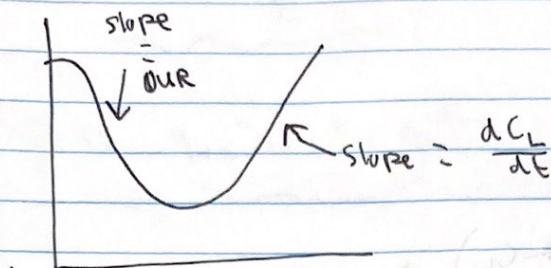 slope
=
OUR
slope = dC_L
dt